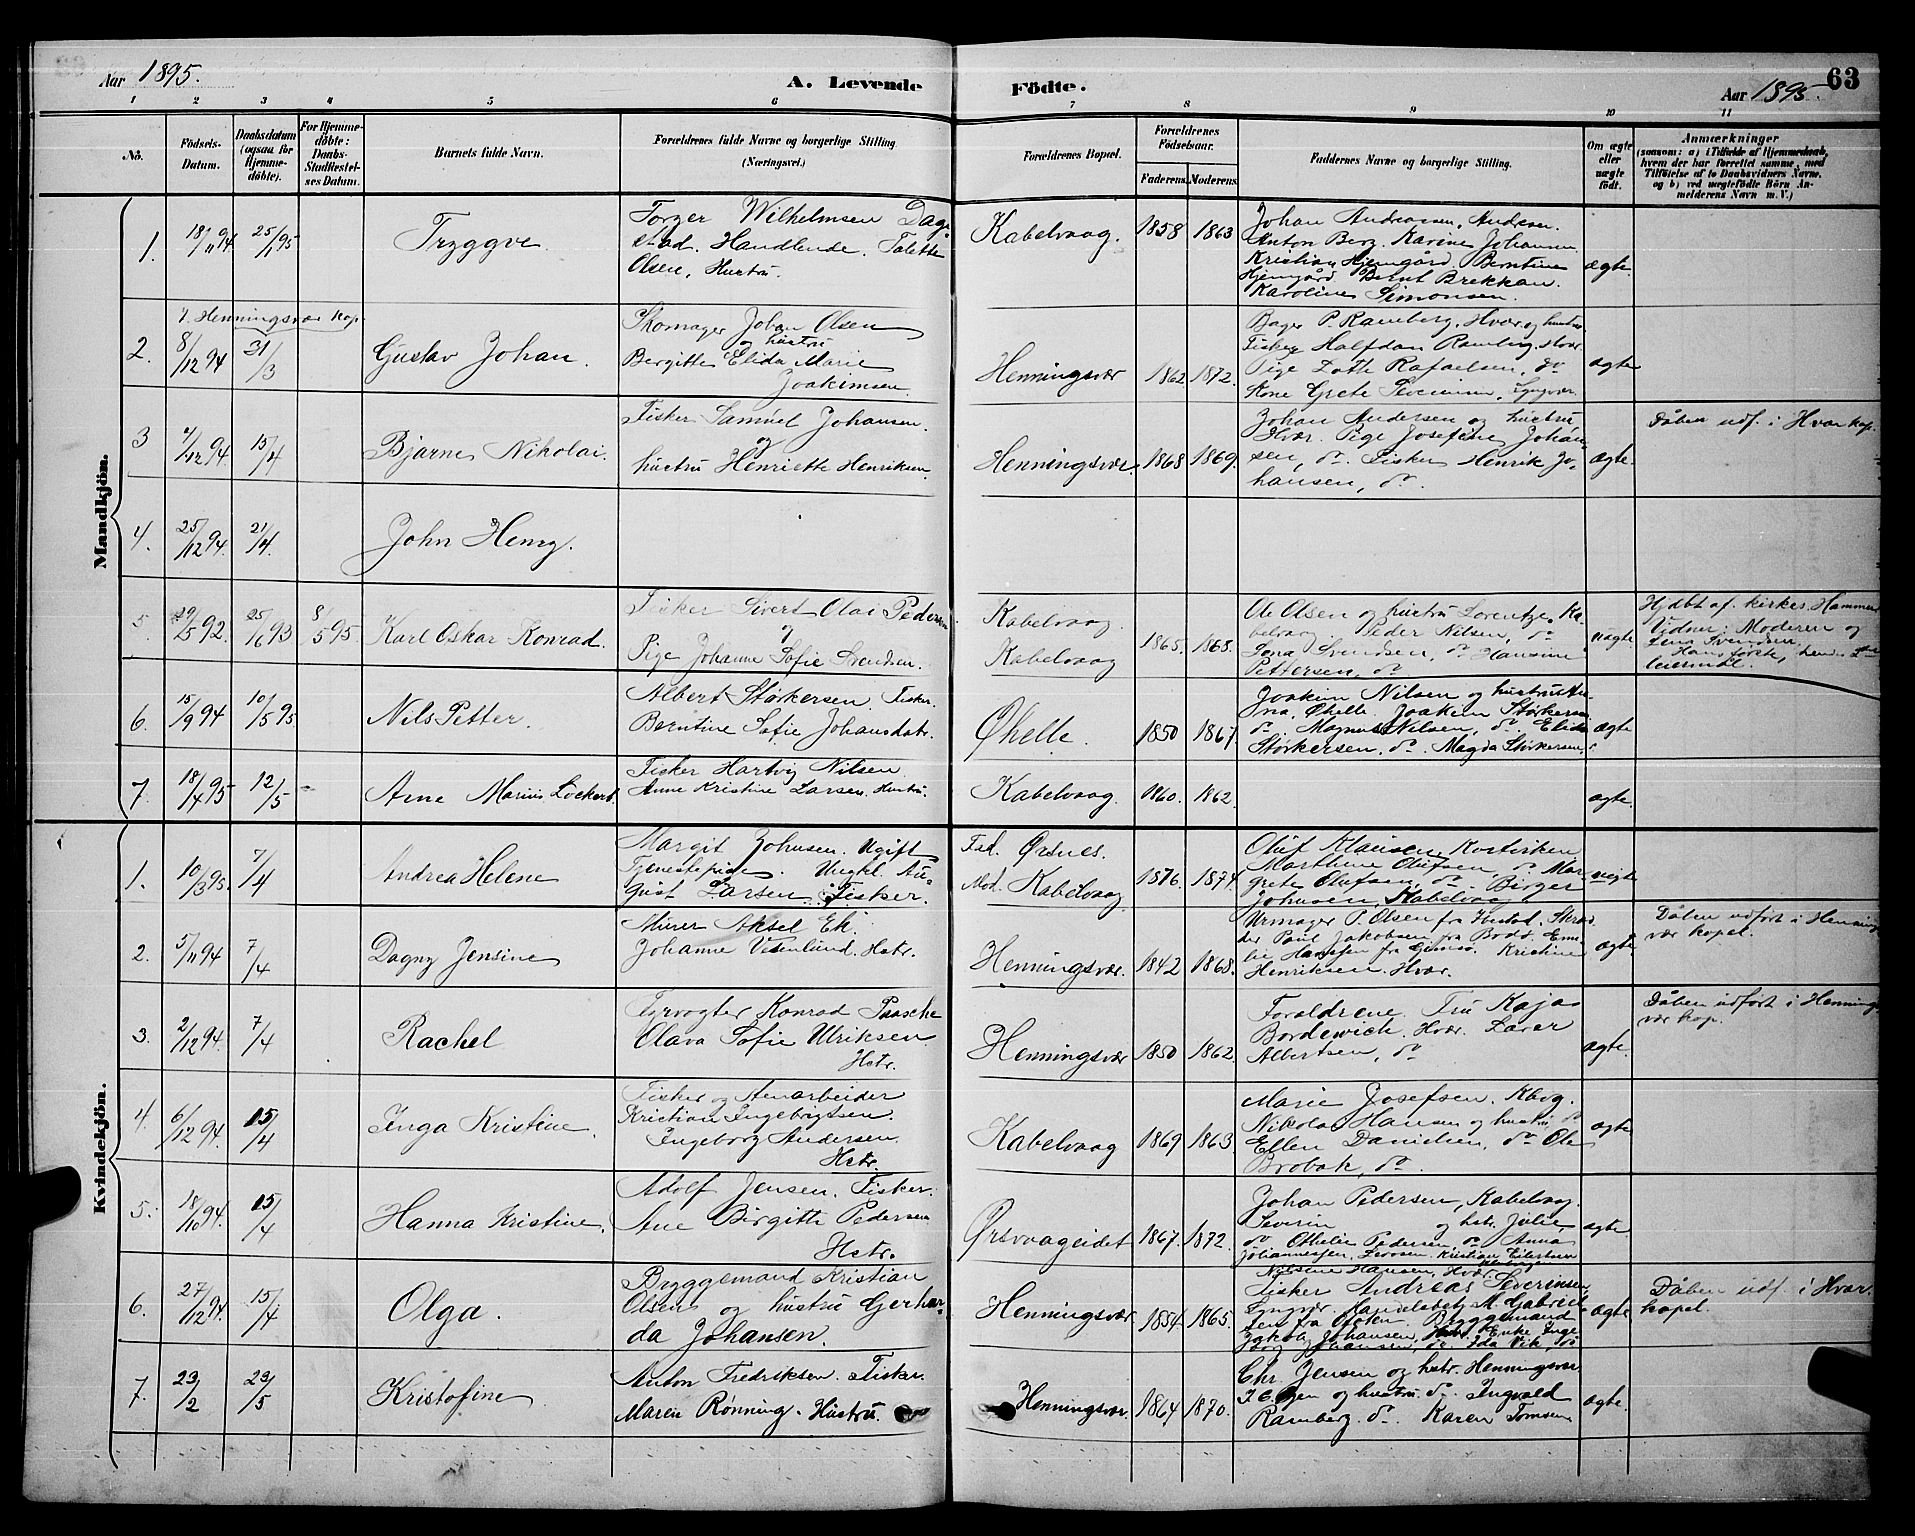 Aar 1895.
A. Levende
Födte.
Aar 1895.
63
1 2 3 4 5 6 7 8 9 10 11
No.
Födsels-Datum.
Daabsdatum (ogsaa for Hjemme-döbte).
For Hjemme-döbte: Daabs-Stadfæstel-ses Datum.
Barnets fulde Navn.
Forældrenes fulde Navne og borgerlige Stilling
(Næringsvei.)
Forældrenes Bopæl.
Forældrenes Födselsaar.
Faderens. Moderens.
Faddernes Navne og borgerlige Stilling.
Om ægte eller uægte födt.
Anmærkninger
(saasom: a) i Tilfælde af Hjemmedaab,
hvem der har forrettet samme, med
Tilföielse af to Daabsvidners Navne,
og b) ved uægtefödte Börn An-
melderens Navn m. V.)
Mandkjön.
1. 18/11 94 25/1 95 Tryggve
Torger Wilhelmsen Dag-
stad. Handlende. Talette
Olsen, Hustru.
Kabelvaag. 1858 1863
Johan Andreassen, Andrea
Anton Berg. Karine Johansen
Kristian Hjemgård Berntine
Hjemgård Bernt Brekkan.
Karoline Simonsen.
ægte.
i Henningsvær kap.
2. 8/12 94 31/3 Gustav Johan.
Skomager Johan Olsen
og hustru
Bergitte Elida Marie
Joakimsen
Henningsvær 1862 1872.
Bager P. Ramberg, Hvær og hustru
Fisker Halfdan Ramberg, Hvær
Pige Lotte Rafaelsen, do
Kone Grete Severinsen, Lyngvær.
ægte
3 9/12 94. 15/4 Bjarne Nikolai.
Fisker Samuel Johansen.
og
hustru Henriette Henriksen
Henningsvær. 1868 1869.
Johan Andersen og hustru,
Hvær. Pige Josefine Johan-
sen, do. Fisker Henrik Jo-
hansen, do.
ægte.
Dåben udf. i Hvær kap.
4. 25/12 94. 21/4 John Henry.
5. 29/5 92. 25/6 93 8/5 95. Karl Oskar Konrad.
Fisker Sivert Olai Pedersen
og
Pige Johanne Sofie Svendsen.
Kabelvaag
Kabelvaag
1865. 1868.
Ole Olsen og hustru Lorentze, Ka-
belvaag Peder Nilsen, do
Jona Svendsen, do Hansine
Pettersen, do
uægte.
Hjdbt af. kirkes. Hammer
Vidner: Moderen og
Jens Svendsen
leiermål.
6. 15/9 94 10/5 95 Nils Petter.
Albert Størkersen. Fisker.
Berntine Sofie Johansdatr.
Øhelle. 1850 1867.
Joakim Nilsen og hustru
Øhelle. Joakim Størkersen
do. Magnus Nilsen, do. Elida
Størkersen, do. Magda Størkersen,
ægte
7. 18/4 95 12/5 Arne Marius Lockert.
Fisker Hartvig Nilsen
Anne Kristine Larsen. Hustru.
Kabelvaag. 1860. 1862.
ægte.
Kvindekjön.
1. 10/3 95. 7/4 Andrea Helene
Margit Johnsen. Ugift
Tjenestepige. Ungkl. Au-
gust Larsen. Fisker.
Fad. Ørsnes.
Mod. Kabelvaag
1876. 1874.
Oluf Klausen,
Marthine Olufsen, do. Mar-
grete Olufsen, do. Birger
Johnsen, Kabelvaag
uegte
2. 5/11 94 7/4 Dagny Jensine
Murer Aksel Ek.
Johanne Vesenlund. Hstr.
Henningsvær. 1842 1868.
Urmager P. Olsen fra Skræd-
der Paul Jakobsen fra Bodø. Emi-
lie Hansen fra Gimsø. Kristine
Henriksen. Hvær.
ægte
Dåben udført i Hennings-
vær kapel.
3. 2/12 94. 7/4 Rachel
Fyrvogter Konrad Paasche
Olava Sofie Ulriksen
Hstr.
Henningsvær 1850 1862.
Foraldrene. Fru Kaja
Bordewick. Hvær. Lærer
Albertsen, do
ægte.
Dåben udført i Hennings-
vær kap.
4. 6/12 94. 15/4 Inga Kristine.
Fisker og Arbeider
Kristian Ingebrigtsen
Ingeborg Andersen
Hstr.
Kabelvaag 1869 1863
Marie Josefsen. Kbvg.
Nikolai Hansen og hustru, do
Ellen Danielsen, do Ole
Brobak, do
ægte
5. 18/10 94. 15/4 Hanna Kristine.
Adolf Jensen. Fisker.
Ane Birgitte Pedersen
Hstr.
Ørsvaageidet 1867. 1872.
Johan Pedersen, Kabelvaag.
Severin og hstr. Julie,
do Othelie Pedersen, do. Anna
Johannessen, Kristian Eilertsen
ægte.
6. 27/12 94. 15/4 Olga.
Bryggemand Kristian
Olsen og hustru Gerhar-
da Johansen.
Henningsvær 1854 1865.
Nilsine Hansen, Hvær.
Fisker Andreas Severinsen
Lyngvær. Handelsbetj. M. Gabriel-
sen fra Ofoten. Bryggemand
Jakob Johansen, Hvær. Enke Inge-
borg Johansen, do. Ida Vik, do
ægte
Dåben udf. i Hvær.
kapel.
7. 23/2 23/5 Kristofine
Anton Fredriksen. Fisker.
Maren Rønning. Hustru.
Henningsvær. 1864 1870.
Chr. Jensen og hstr. Henningsvær
og hustru do. Ingvald
Ramberg, do. Karen Tomsen
ægte.